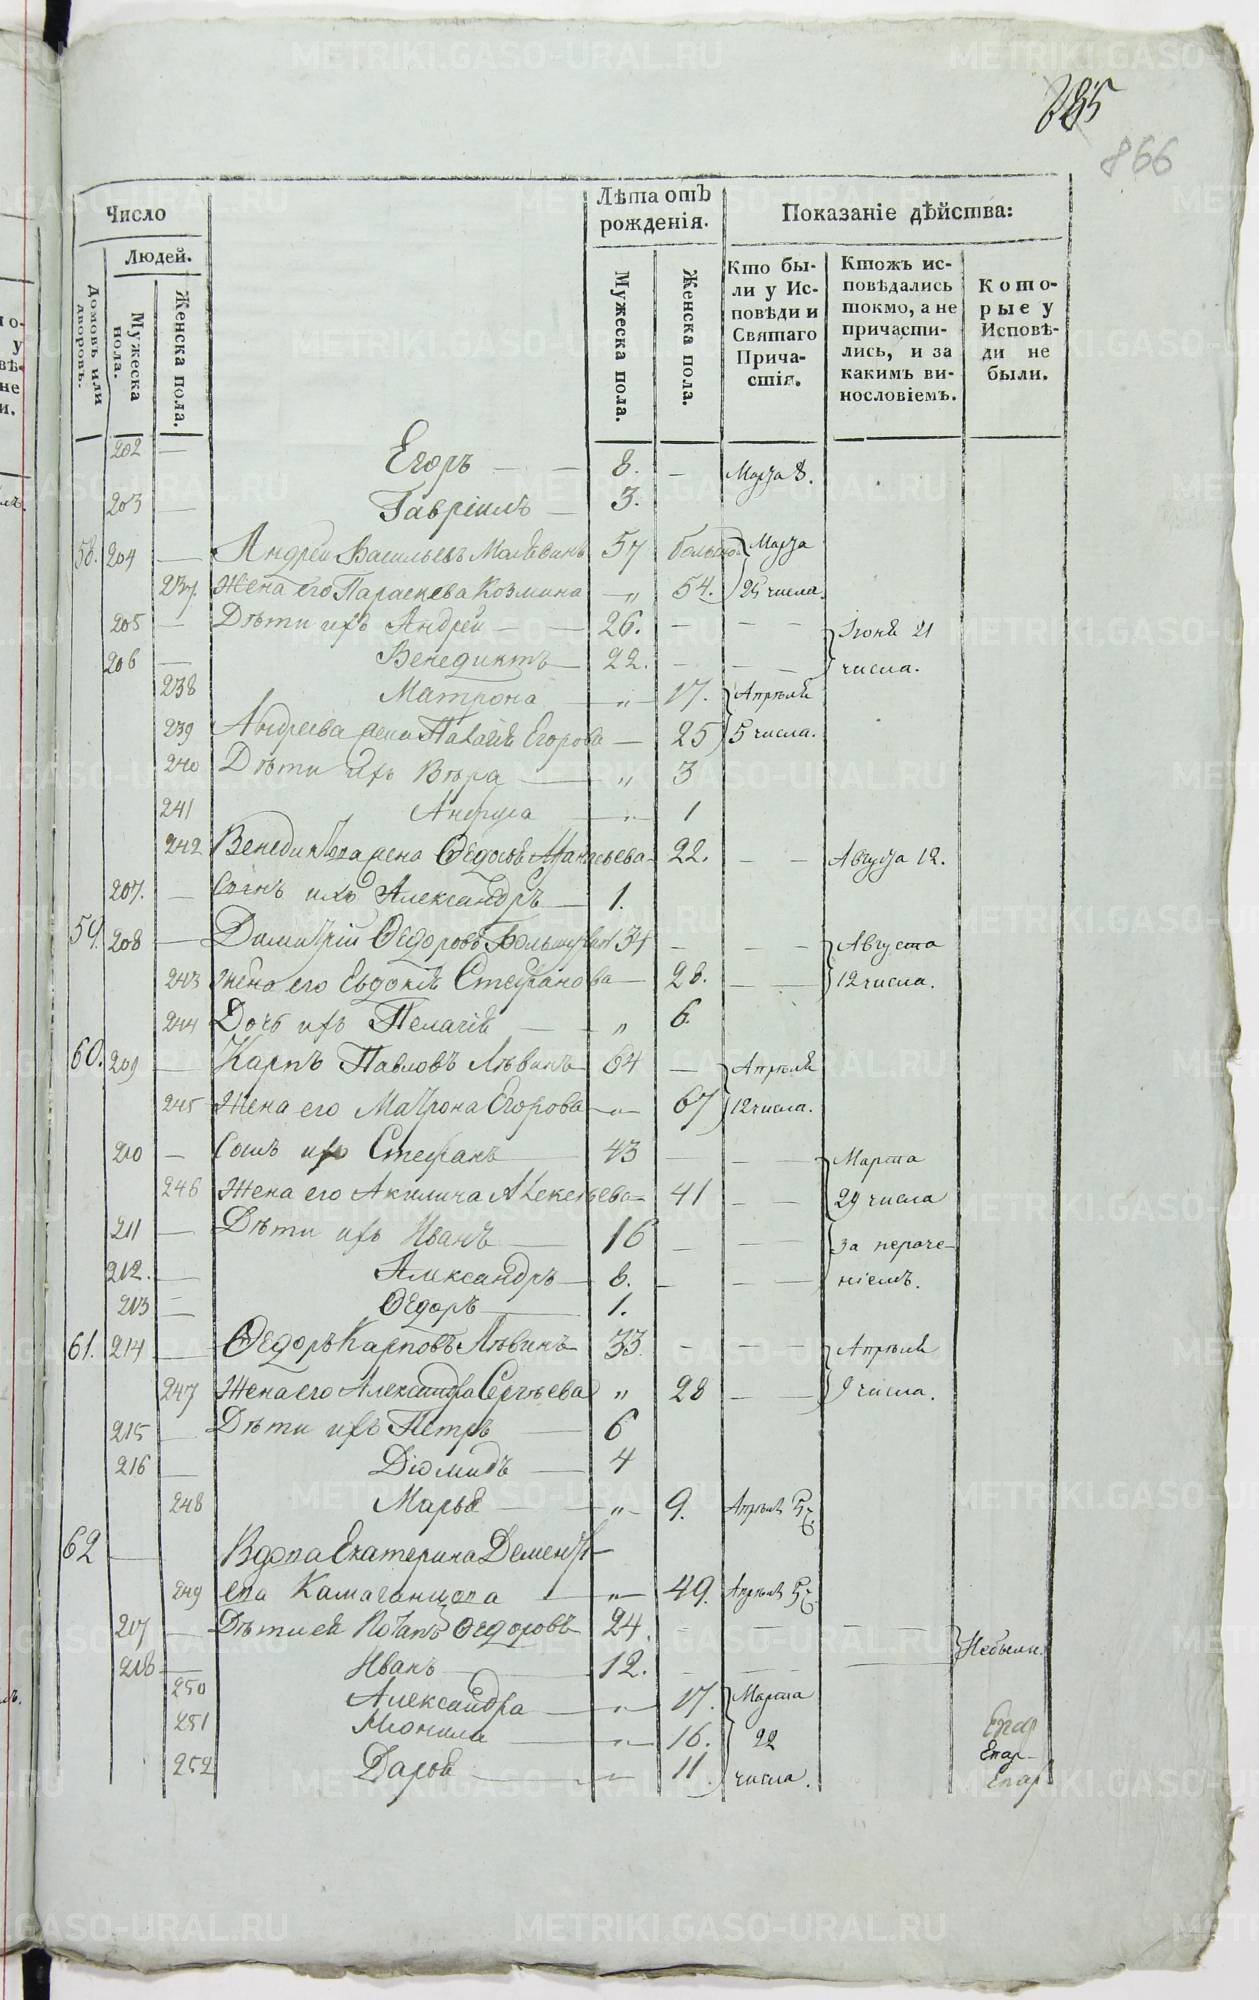 885
866
Число
Людей.
Домовъ или дворовъ.
Мужеска пола.
Женска пола.
Лѣта отъ рожденія.
Мужеска пола.
Женска пола.
Показаніе дѣйства:
Кто бы-
ли у Ис-
повѣди и
Святаго
Прича-
стія.
Ктожъ ис-
повѣдались
токмо, а не
причасти-
лись, и за
какимъ ви-
нословіемъ.
Кото-
рые у
Исповѣ-
ди не
были.
202 — Егоръ — 8. — Марта 8.
203 — Гавріилъ — 3.
58. 204 — Андрей Васильевъ 57 Марта
237. Жена его Параскева Козмина — 54. 25 числа.
205 — Дѣти ихъ Андрей — 26. — — — Іюня 21
206 — Венедиктъ — 22. — — — числа.
238 Матрона — 17. Апрѣля
239 Андреева жена Пелагія Егорова — 25 5 числа.
240 Дѣти ихъ Вѣра — „ 3
241 Анфуса — 1
242 Венедиктова жена Ѳедосья Афанасьева 22. — — Августа 12.
207. — Сынъ ихъ Александръ — 1.
59. 208 — Димитрій Ѳедоровъ 34 — — — Августа
243 Жена его Евдокія Стефанова — 28. — — 12 числа.
244 Дочь ихъ Пелагія — „ 6.
60. 209 — Карпъ Павловъ Лѣвинъ 64 — Апрѣля
245 Жена его Матрона Егорова — „ 67 12 числа.
210 — Сынъ ихъ Стефанъ 43 — — — Марта
246 Жена его Акилина Алексѣева — 41 — — 29 числа
211 — Дѣти ихъ Иванъ — 16 — — — за нераче-
212. — Александръ — 8. — — — ніемъ.
213 — Ѳедоръ — 1.
61. 214 — Ѳедоръ Карповъ Лѣвинъ 33. — — — Апрѣля
247 Жена его Александра Сергѣева „ 28 — — 9 числа.
215 — Дѣти ихъ Петръ — 6
216 — Діомидъ — 4
248 Марья — „ 9. Апрѣля 5 ч.
62 — Вдова Екатерина Дементь-
249 ева — „ 49. Апрѣля 5 ч.
217 — Дѣти ей Потапъ Ѳедоровъ 24. — — — — — Небыли.
218 — Иванъ — 12. — — —
250 Александра — „ 17. Марта
251 — „ 16. 22
252 Дарья — „ 11. числа.
Епар-
METRIKI.GASO-URAL.RU